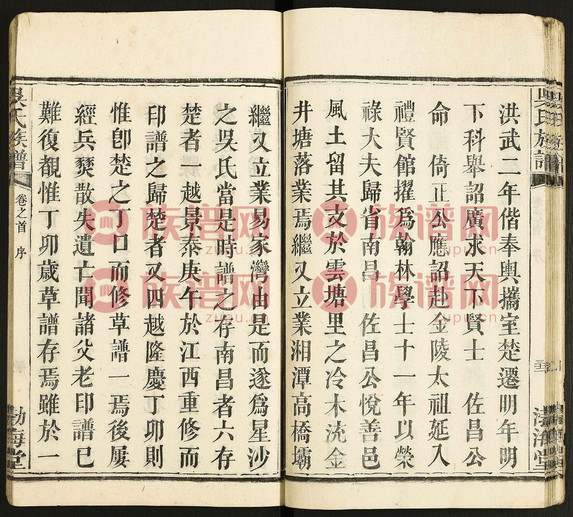 洪武二年偕奉輿攜室楚遷明年明
下科舉詔廣求天下賢士　佐昌公
命　倚正公應詔赴金陵太祖延入
禮賢館擢爲翰林學士十一年以榮
祿大夫歸省南昌　佐昌公悅善邑
風土留其文於雲塘里之冷木流金
井塘落業焉繼又立業湘潭高橋壩
繼又立業易家灣由是而遂爲星沙
之吳氏當是時譜之存南昌者六存
楚者一越景泰庚午於江西重修而
印譜之歸楚者又四越隆慶丁卯則
惟卽楚之丁口而修草譜一焉後屢
經兵燹散失遺亡聞諸父老印譜已
難復覩惟丁卯歲草譜存焉雖於一
吳氏族譜
卷之首　序
渤海堂
吳氏族譜
渤海堂
族谱网
族谱网
族谱网
族谱网